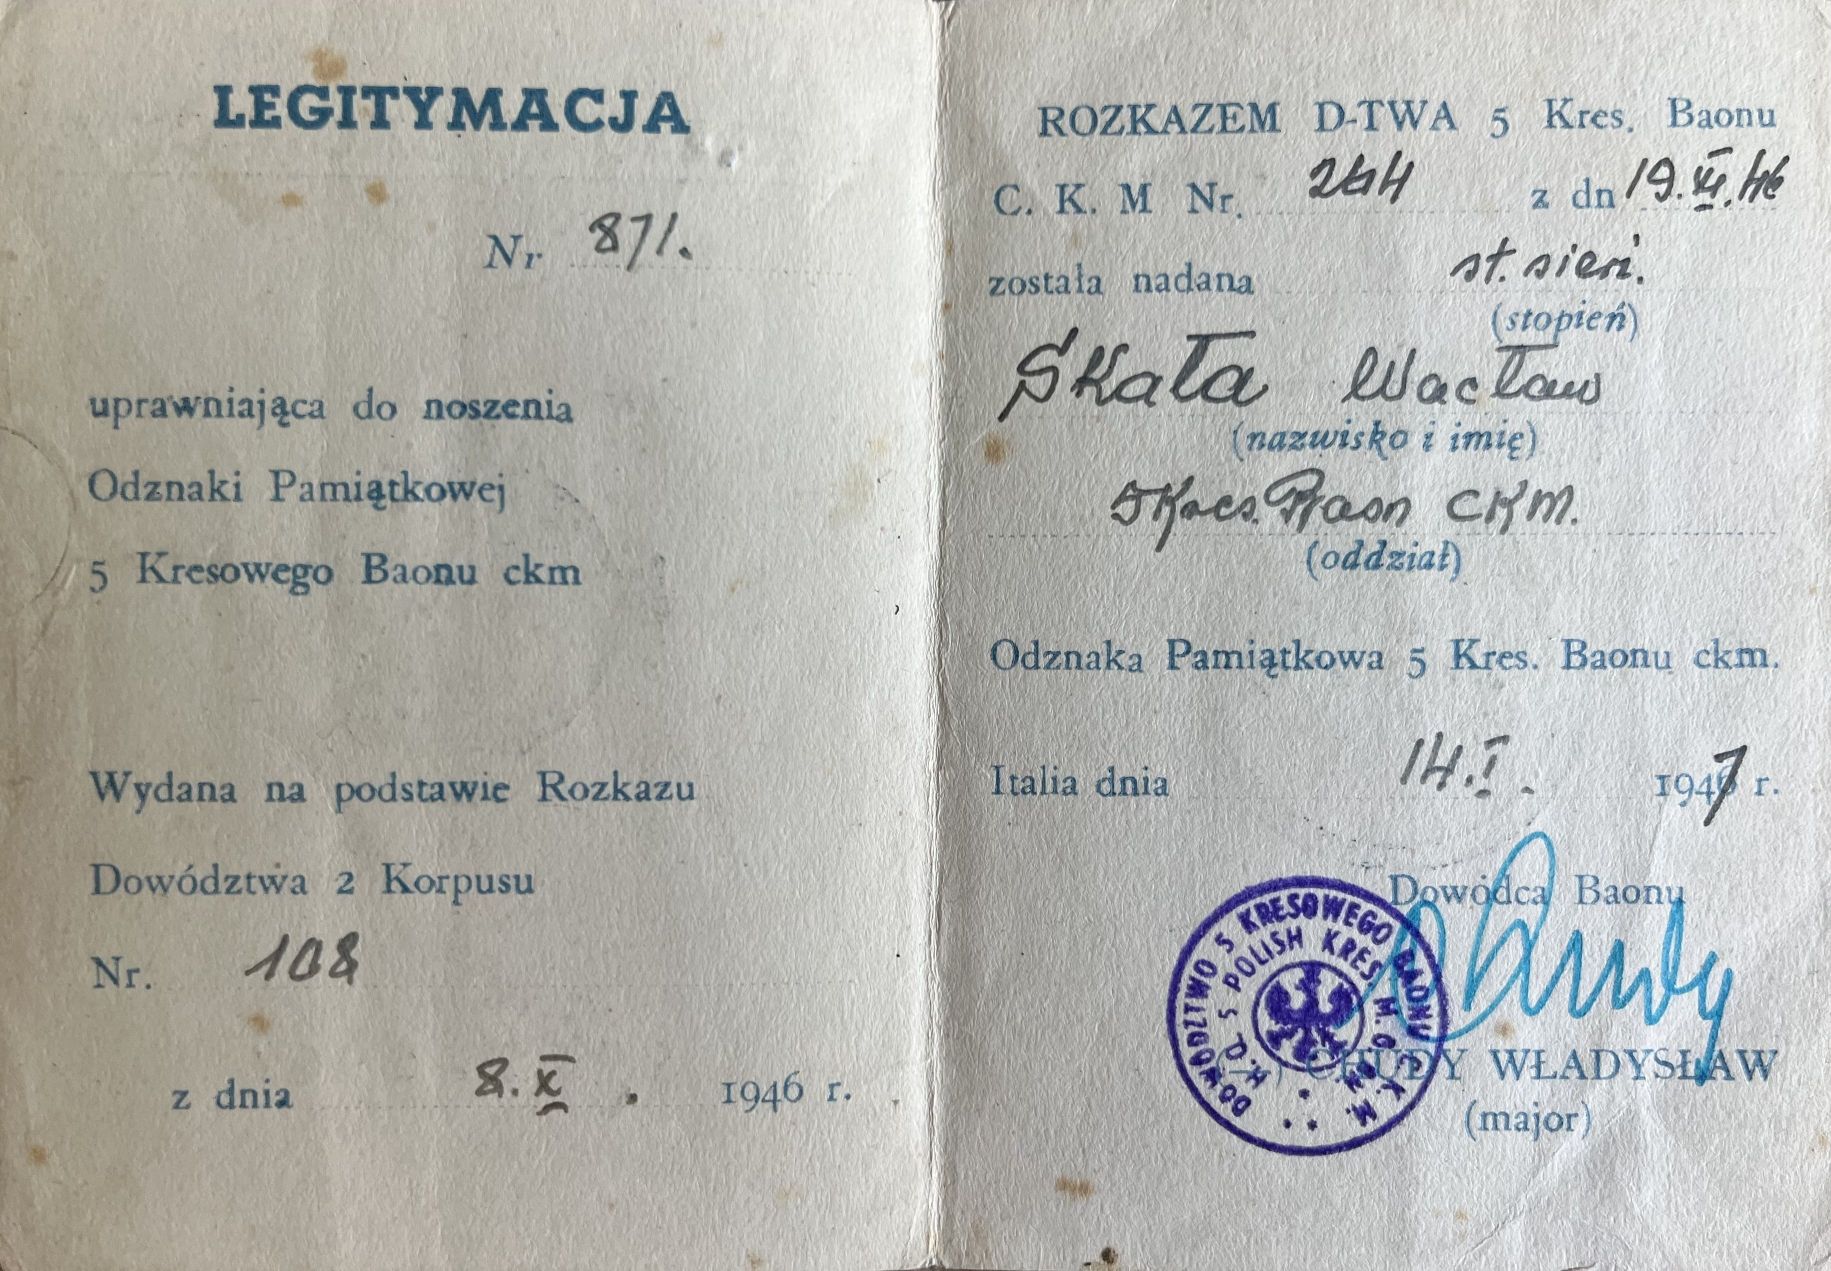 LEGITYMACJA
Nr 871.
uprawniająca do noszenia
Odznaki Pamiątkowej
5 Kresowego Baonu ckm
Wydana na podstawie Rozkazu
Dowództwa 2 Korpusu
Nr. 108
z dnia 8.X. 1946 r.
ROZKAZEM D-TWA 5 Kres. Baonu
C. K. M Nr. 244 z dn 19.XI.46
została nadana st. sierż.
(stopień)
Skała Wacław
(nazwisko i imię)
5 Kres. Baon CKM.
(oddział)
Odznaka Pamiątkowa 5 Kres. Baonu ckm.
Italia dnia 14.I. 1947 r.
Dowódca Baonu
DOWÓDZTWO 5 KRESOWEGO BAONU C.K.M.
H.Q. 5 POLISH KRES. M.G. BN.
(—) CHUDY WŁADYSŁAW
(major)